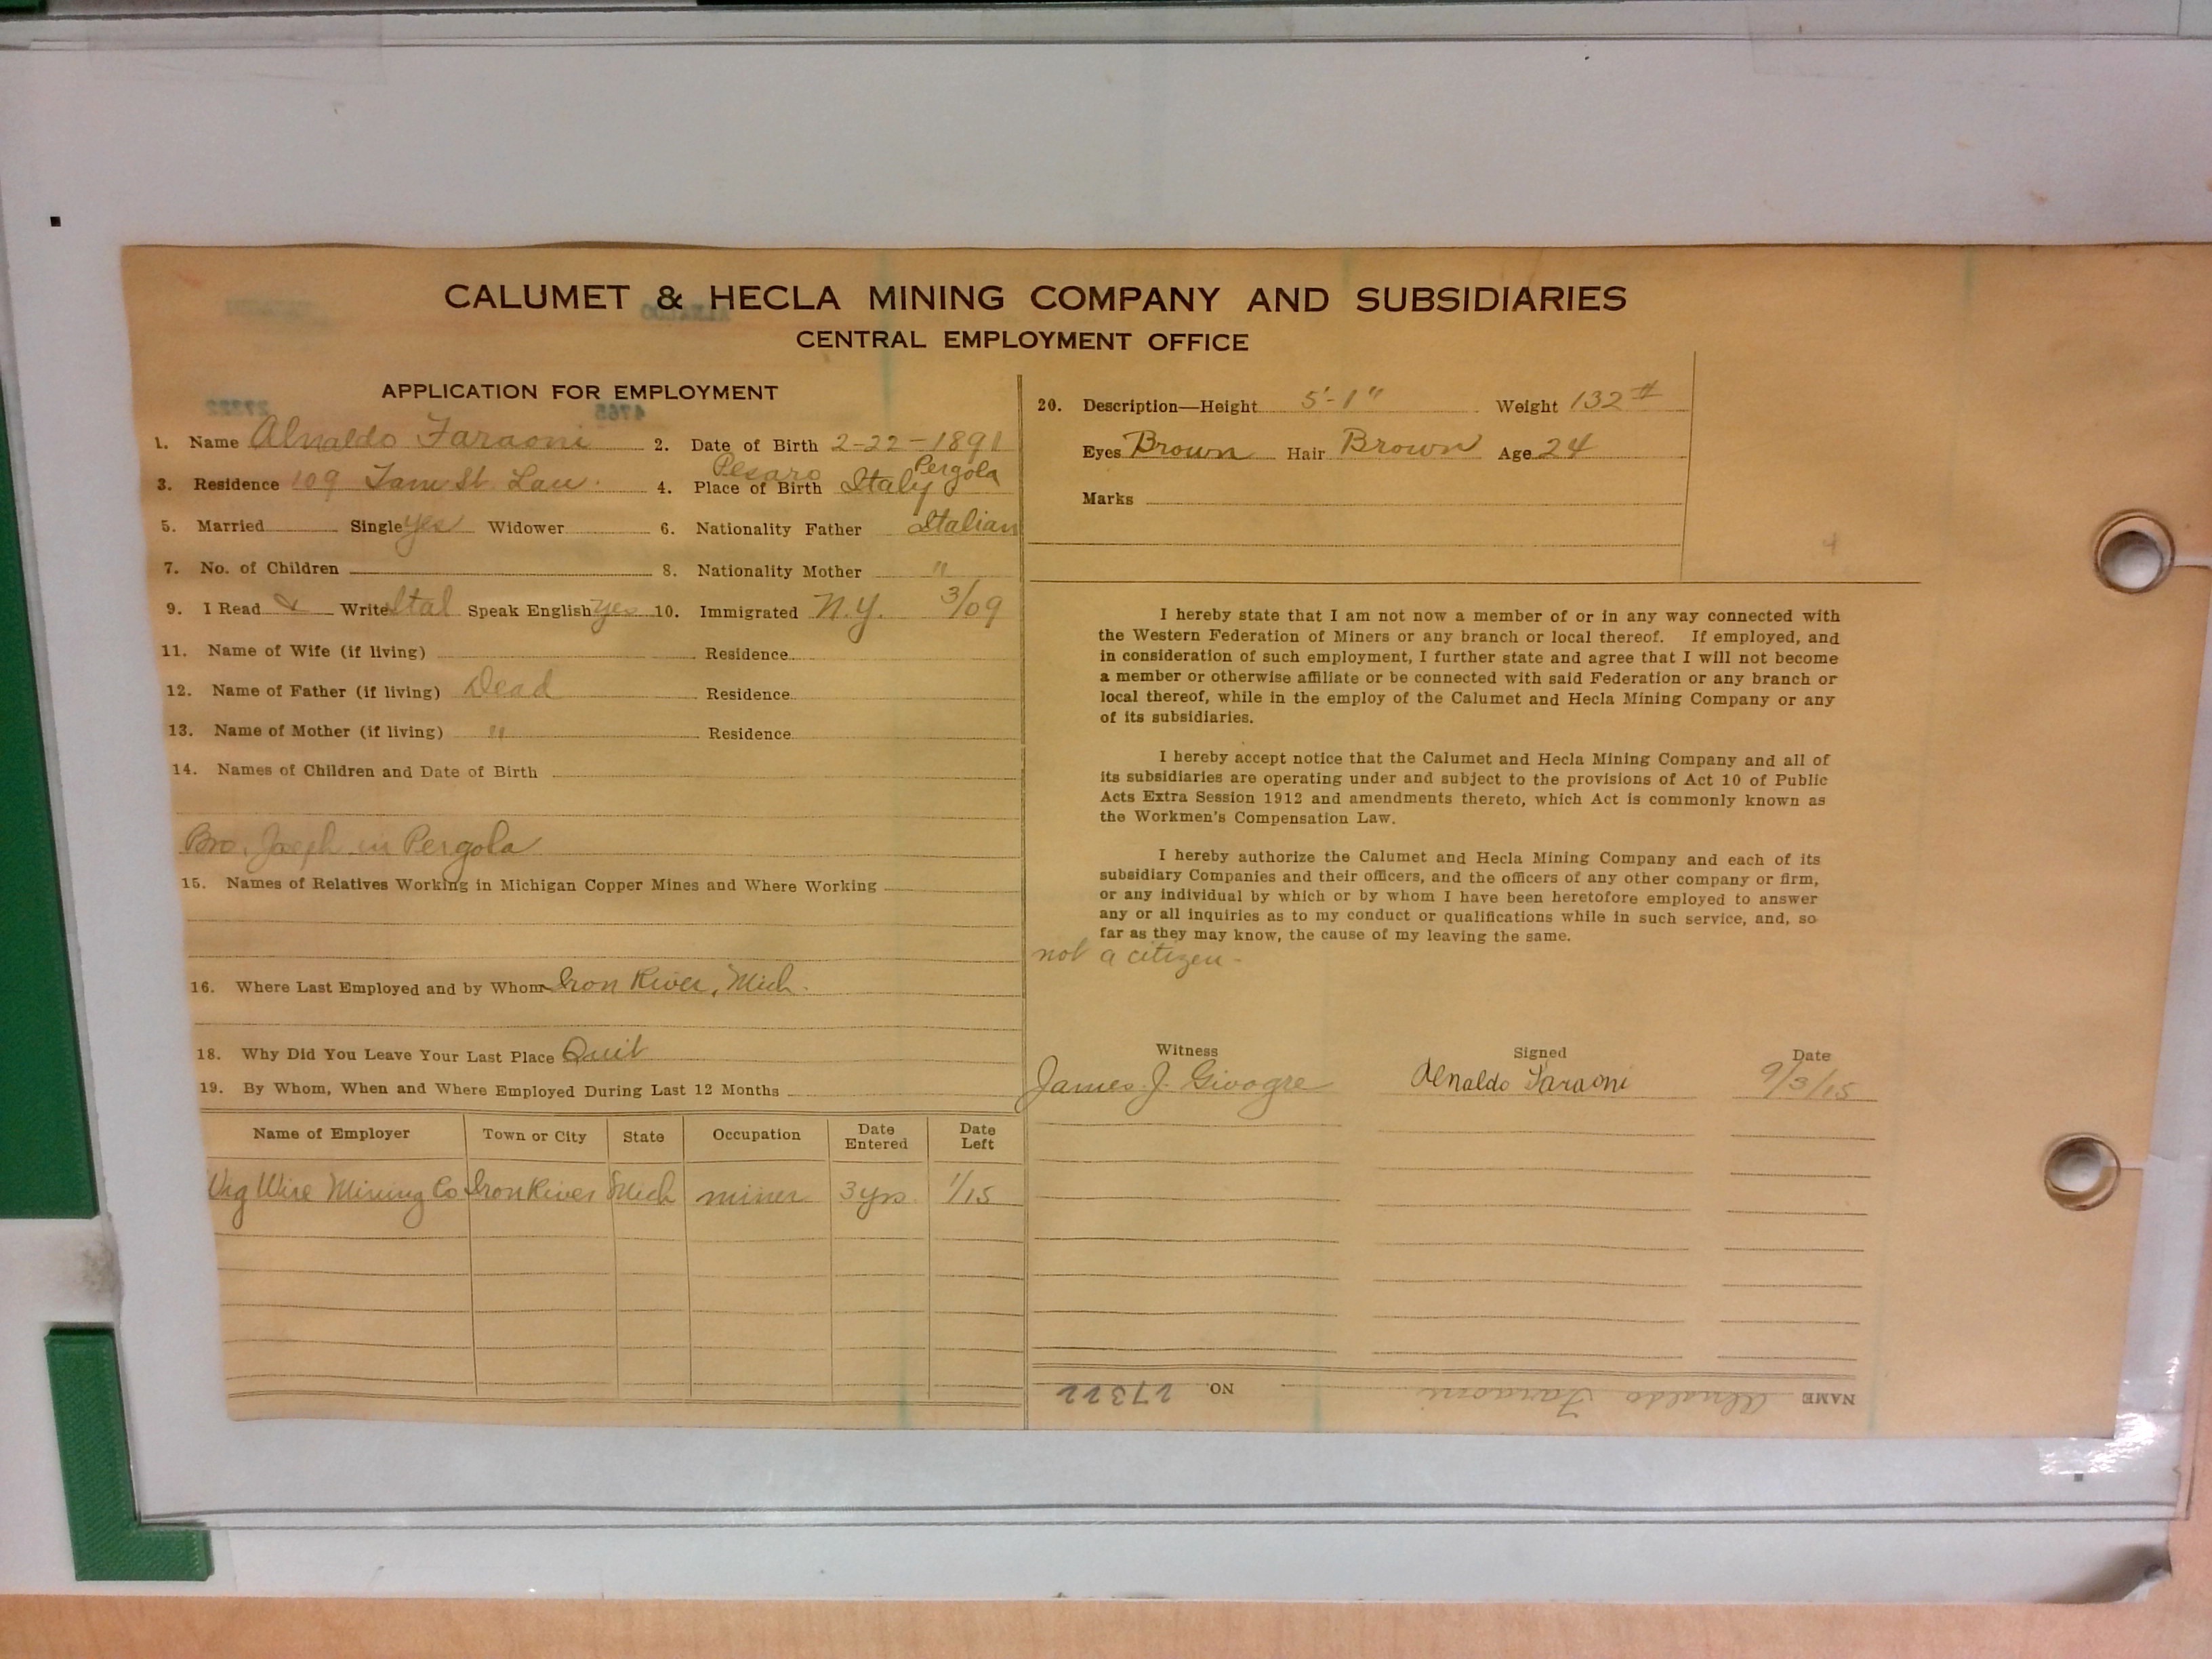 CALUMET & HECLA MINING COMPANY AND SUBSIDIARIES
CENTRAL EMPLOYMENT OFFICE
APPLICATION FOR EMPLOYMENT
27322 4765
1. Name Alnaldo Faraoni 2. Date of Birth 2-22-1891
3. Residence 109 Tam St. Lau. 4. Place of Birth Pesaro Italy Pergola
5. Married Single yes Widower 6. Nationality Father Italian
7. No. of Children 8. Nationality Mother "
9. I Read & Write Ital Speak English yes 10. Immigrated N.Y. 3/09
11. Name of Wife (if living) Residence
12. Name of Father (if living) Dead Residence
13. Name of Mother (if living) " Residence
14. Names of Children and Date of Birth
Bro. Joseph in Pergola
15. Names of Relatives Working in Michigan Copper Mines and Where Working
16. Where Last Employed and by Whom Iron River, Mich.
18. Why Did You Leave Your Last Place Quit
19. By Whom, When and Where Employed During Last 12 Months
Name of Employer Town or City State Occupation Date Entered Date Left
Wire Mining Co Iron River Mich miner 3 yrs. 1/15
20. Description—Height 5'-1" Weight 132 #
Eyes Brown Hair Brown Age 24
Marks
4
I hereby state that I am not now a member of or in any way connected with
the Western Federation of Miners or any branch or local thereof. If employed, and
in consideration of such employment, I further state and agree that I will not become
a member or otherwise affiliate or be connected with said Federation or any branch or
local thereof, while in the employ of the Calumet and Hecla Mining Company or any
of its subsidiaries.
I hereby accept notice that the Calumet and Hecla Mining Company and all of
its subsidiaries are operating under and subject to the provisions of Act 10 of Public
Acts Extra Session 1912 and amendments thereto, which Act is commonly known as
the Workmen's Compensation Law.
I hereby authorize the Calumet and Hecla Mining Company and each of its
subsidiary Companies and their officers, and the officers of any other company or firm,
or any individual by which or by whom I have been heretofore employed to answer
any or all inquiries as to my conduct or qualifications while in such service, and, so
far as they may know, the cause of my leaving the same.
not a citizen -
Witness Signed Date
James J. Givogre Alnaldo Faraoni 9/3/15
NAME Alnaldo Faraoni NO. 27322